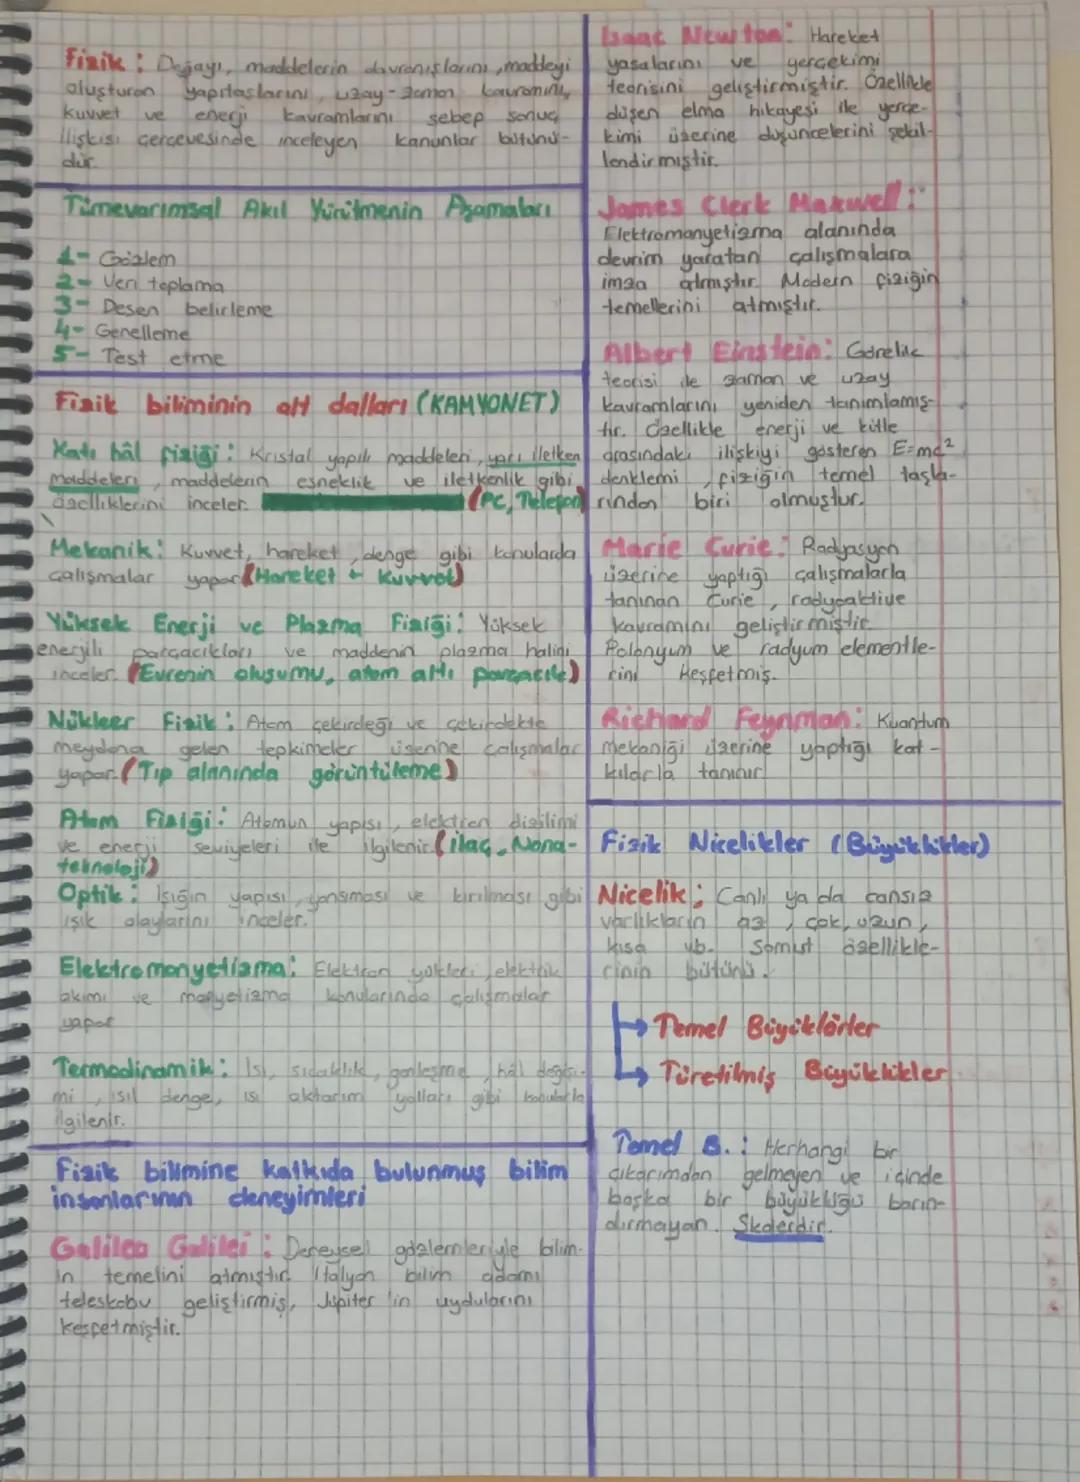 Fizik : Doğayı, maddelerin davranışlarını, maddeyi
oluşturan yapıtaşlarını, uzay-zaman kavramını,
kuvvet ve enerji kavramlarını sebep sonuç
ilişkisi çerçevesinde inceleyen kanunlar bütünü-
dür.
Tümevarımsal Akıl Yürütmenin Aşamaları
1- Gözlem
2- Veri toplama
3- Desen belirleme
4- Genelleme
5- Test etme
Fizik biliminin alt dalları (KAMYONET)
Katı hâl fiziği : Kristal yapılı maddeleri, yarı iletken
maddeleri, maddelerin esneklik ve iletkenlik gibi
özelliklerini inceler. (PC, Telefon)
Mekanik : Kuvvet, hareket, denge gibi konularda
çalışmalar yapar (Hareket + Kuvvet)
Yüksek Enerji ve Plazma Fiziği : Yüksek
enerjili parçacıkları ve maddenin plazma halini
inceler. (Evrenin oluşumu, atom altı parçacık)
Nükleer Fizik : Atom çekirdeği ve çekirdekte
meydana gelen tepkimeler üzerine çalışmalar
yapar. (Tıp alanında görüntüleme)
Atom Fiziği : Atomun yapısı, elektron dizilimi
ve enerji seviyeleri ile ilgilenir. (ilaç, Nano-
teknoloji)
Optik : Işığın yapısı, yansıması ve kırılması gibi
ışık olaylarını inceler.
Elektromanyetizma : Elektron yükleri, elektrik
akımı ve manyetizma konularında çalışmalar
yapar
Termodinamik : Isı, sıcaklık, genleşme, hâl değişi-
mi, ısıl denge, ısı aktarım yolları gibi konularla
ilgilenir.
Fizik bilimine katkıda bulunmuş bilim
insanlarının deneyimleri
Galileo Galilei : Deneysel gözlemleriyle bilim-
in temelini atmıştır. İtalyan bilim adamı
teleskobu geliştirmiş, Jüpiter'in uydularını
keşfetmiştir.
Isaac Newton : Hareket
yasalarını ve yerçekimi
teorisini geliştirmiştir. Özellikle
düşen elma hikayesi ile yerçe-
kimi üzerine düşüncelerini şekil-
lendirmiştir.
James Clerk Maxwell :
Elektromanyetizma alanında
devrim yaratan çalışmalara
imza atmıştır. Modern fiziğin
temellerini atmıştır.
Albert Einstein : Görelik
teorisi ile zaman ve uzay
kavramlarını yeniden tanımlamış-
tır. Özellikle enerji ve kütle
arasındaki ilişkiyi gösteren E=mc²
denklemi, fiziğin temel taşla-
rından biri olmuştur.
Marie Curie : Radyasyon
üzerine yaptığı çalışmalarla
tanınan Curie, radyoaktive
kavramını geliştirmiştir.
Polonyum ve radyum elementle-
rini Keşfetmiş.
Richard Feynman : Kuantum
mekaniği üzerine yaptığı kat-
kılarla tanınır
Fizik Nicelikler (Büyüklükler)
Nicelik ; Canlı ya da cansız
varlıkların az, çok, uzun,
kısa vb. somut özellikle-
rinin bütünü.
Temel Büyüklükler
Türetilmiş Büyüklükler
Temel B. : Herhangi bir
çıkarımdan gelmeyen ve içinde
başka bir büyüklüğü barın-
dırmayan. Skalerdir.